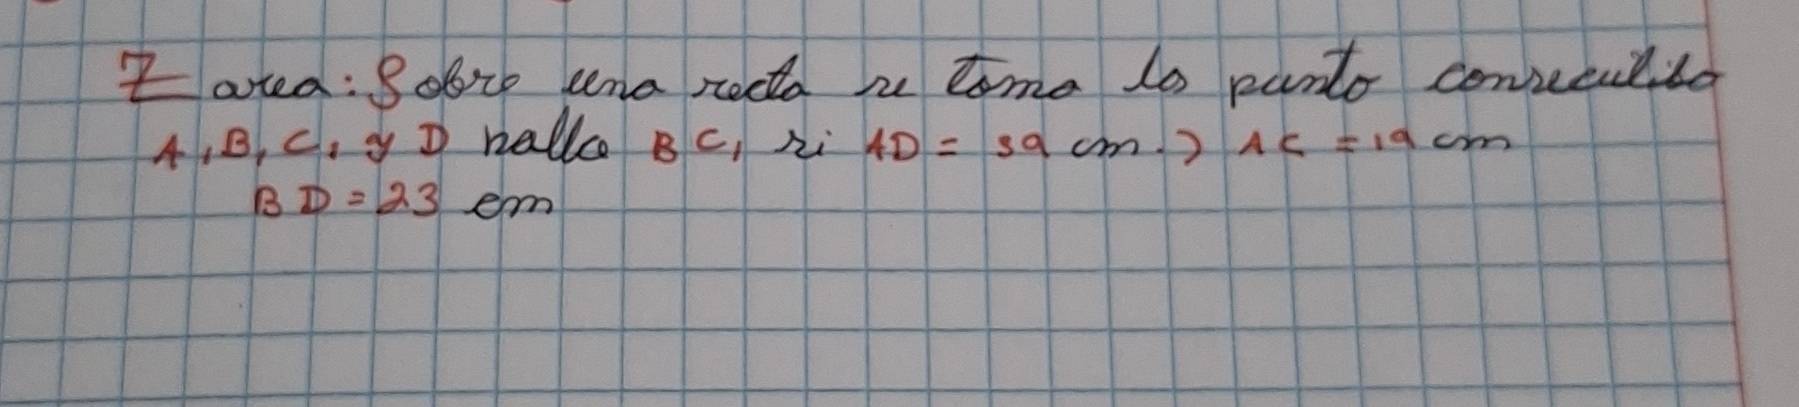 Tarea: Sobre una recta se toma los punto consecutibo
A, B, C, y D halla BC, si AD = 39 cm. , AC = 19 cm
BD = 23 cm